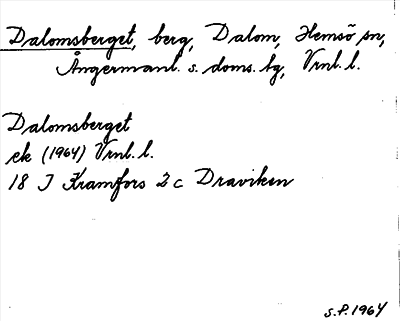 Dalomsberget, berg, Dalom, Hemsö sn,
Ångermanl. s. doms. hg, Vrnl. l.
Dalomsberget
ek (1964) Vrnl. l.
18 J Kramfors 2 c Draviken
S.P. 1964